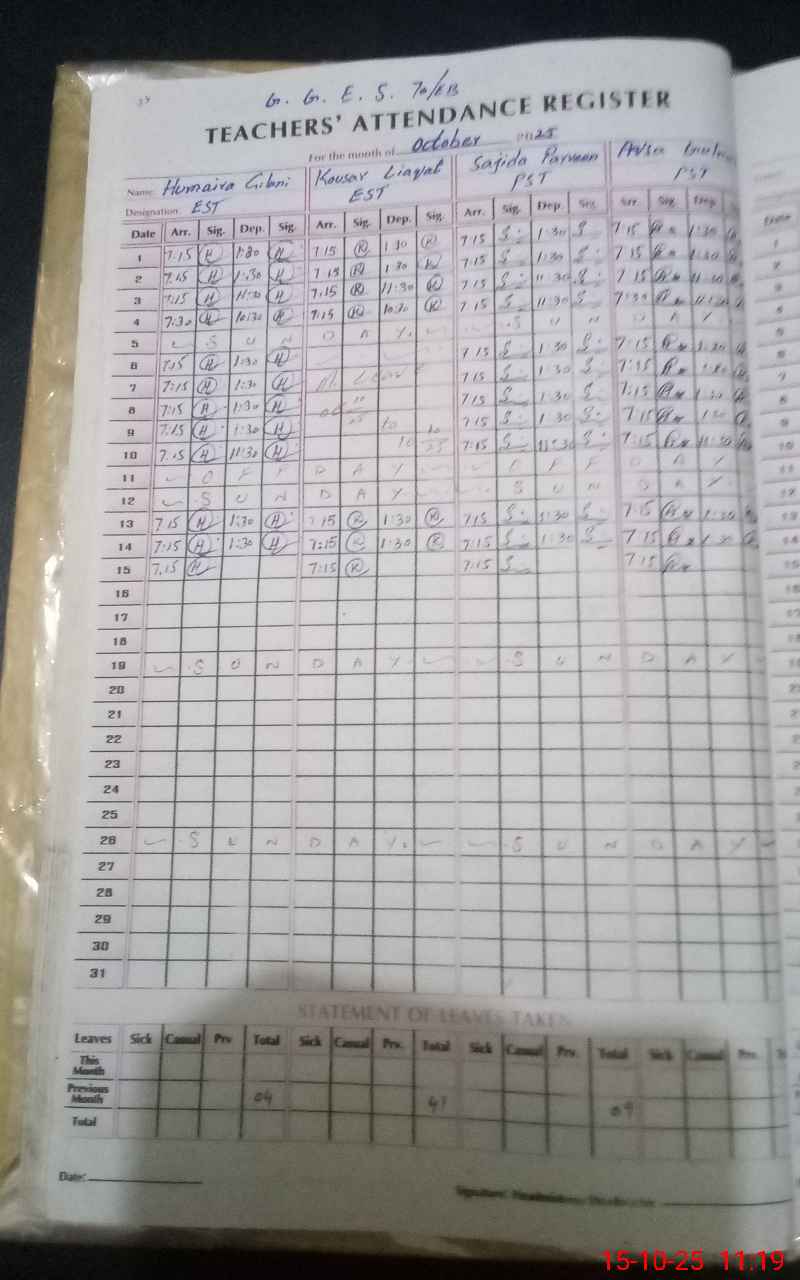 G. G. E. S. 70/EB
TEACHERS' ATTENDANCE REGISTER
For the month of October 2025
Name: Humaira Gilani Kousar Liaqat Sajida Parveen
Designation: EST EST PST PST
Date Arr. Sig. Dep. Sig. Arr. Sig. Dep. Sig. Arr. Sig. Dep. Sig. Arr. Sig. Dep.
1 7:15 H 1:30 H 7 15 K 1 30 K 7 15 S 1 30 S 7 15 1:30
2 7:15 H 1:30 H 7 15 K 1 30 K 7 15 S 1:30 S 7 15 1:30
3 7:15 H 11:30 H 7.15 K 11:30 K 7 15 S 11:30 S 7 15 11:30
4 7:30 H 10:30 H 7:15 K 10:30 K 7 15 S 11:30 S 7:30 11:30
5 S U N D A Y S U N D A Y
6 7:15 H 1:30 H 7 15 S 1:30 S 7:15 1:30
7 7:15 H 1:30 H Leave 7 15 S 1:30 S 7:15 1:30
8 7:15 H 1:30 H 7 15 S 1:30 S 7:15 1:30
9 7:15 H 1:30 H 10 7:15 S 1 30 S 7:15 1:30
10 7:15 H 11:30 H 10 7:15 S 11:30 S 7:15 11:30
11 O F F D A Y O F F D A Y
12 S U N D A Y S U N D A Y
13 7 15 H 1:30 H 7 15 K 1:30 K 7:15 S 1:30 S 7:15 1:30
14 7:15 H 1:30 H 7:15 K 1:30 K 7:15 S 1:30 S 7 15 1 30
15 7.15 H 7:15 K 7:15 S 7 15
16
17
18
19 S U N D A Y S U N D A Y
20
21
22
23
24
25
26 S U N D A Y S U N D A Y
27
28
29
30
31
STATEMENT OF LEAVES TAKEN
Leaves Sick Casual Prv. Total Sick Casual Prv. Total Sick Casual Prv. Total Sick Casual Prv.
This Month
Previous Month 04 41 09
Total
Date:
15-10-25 11:19